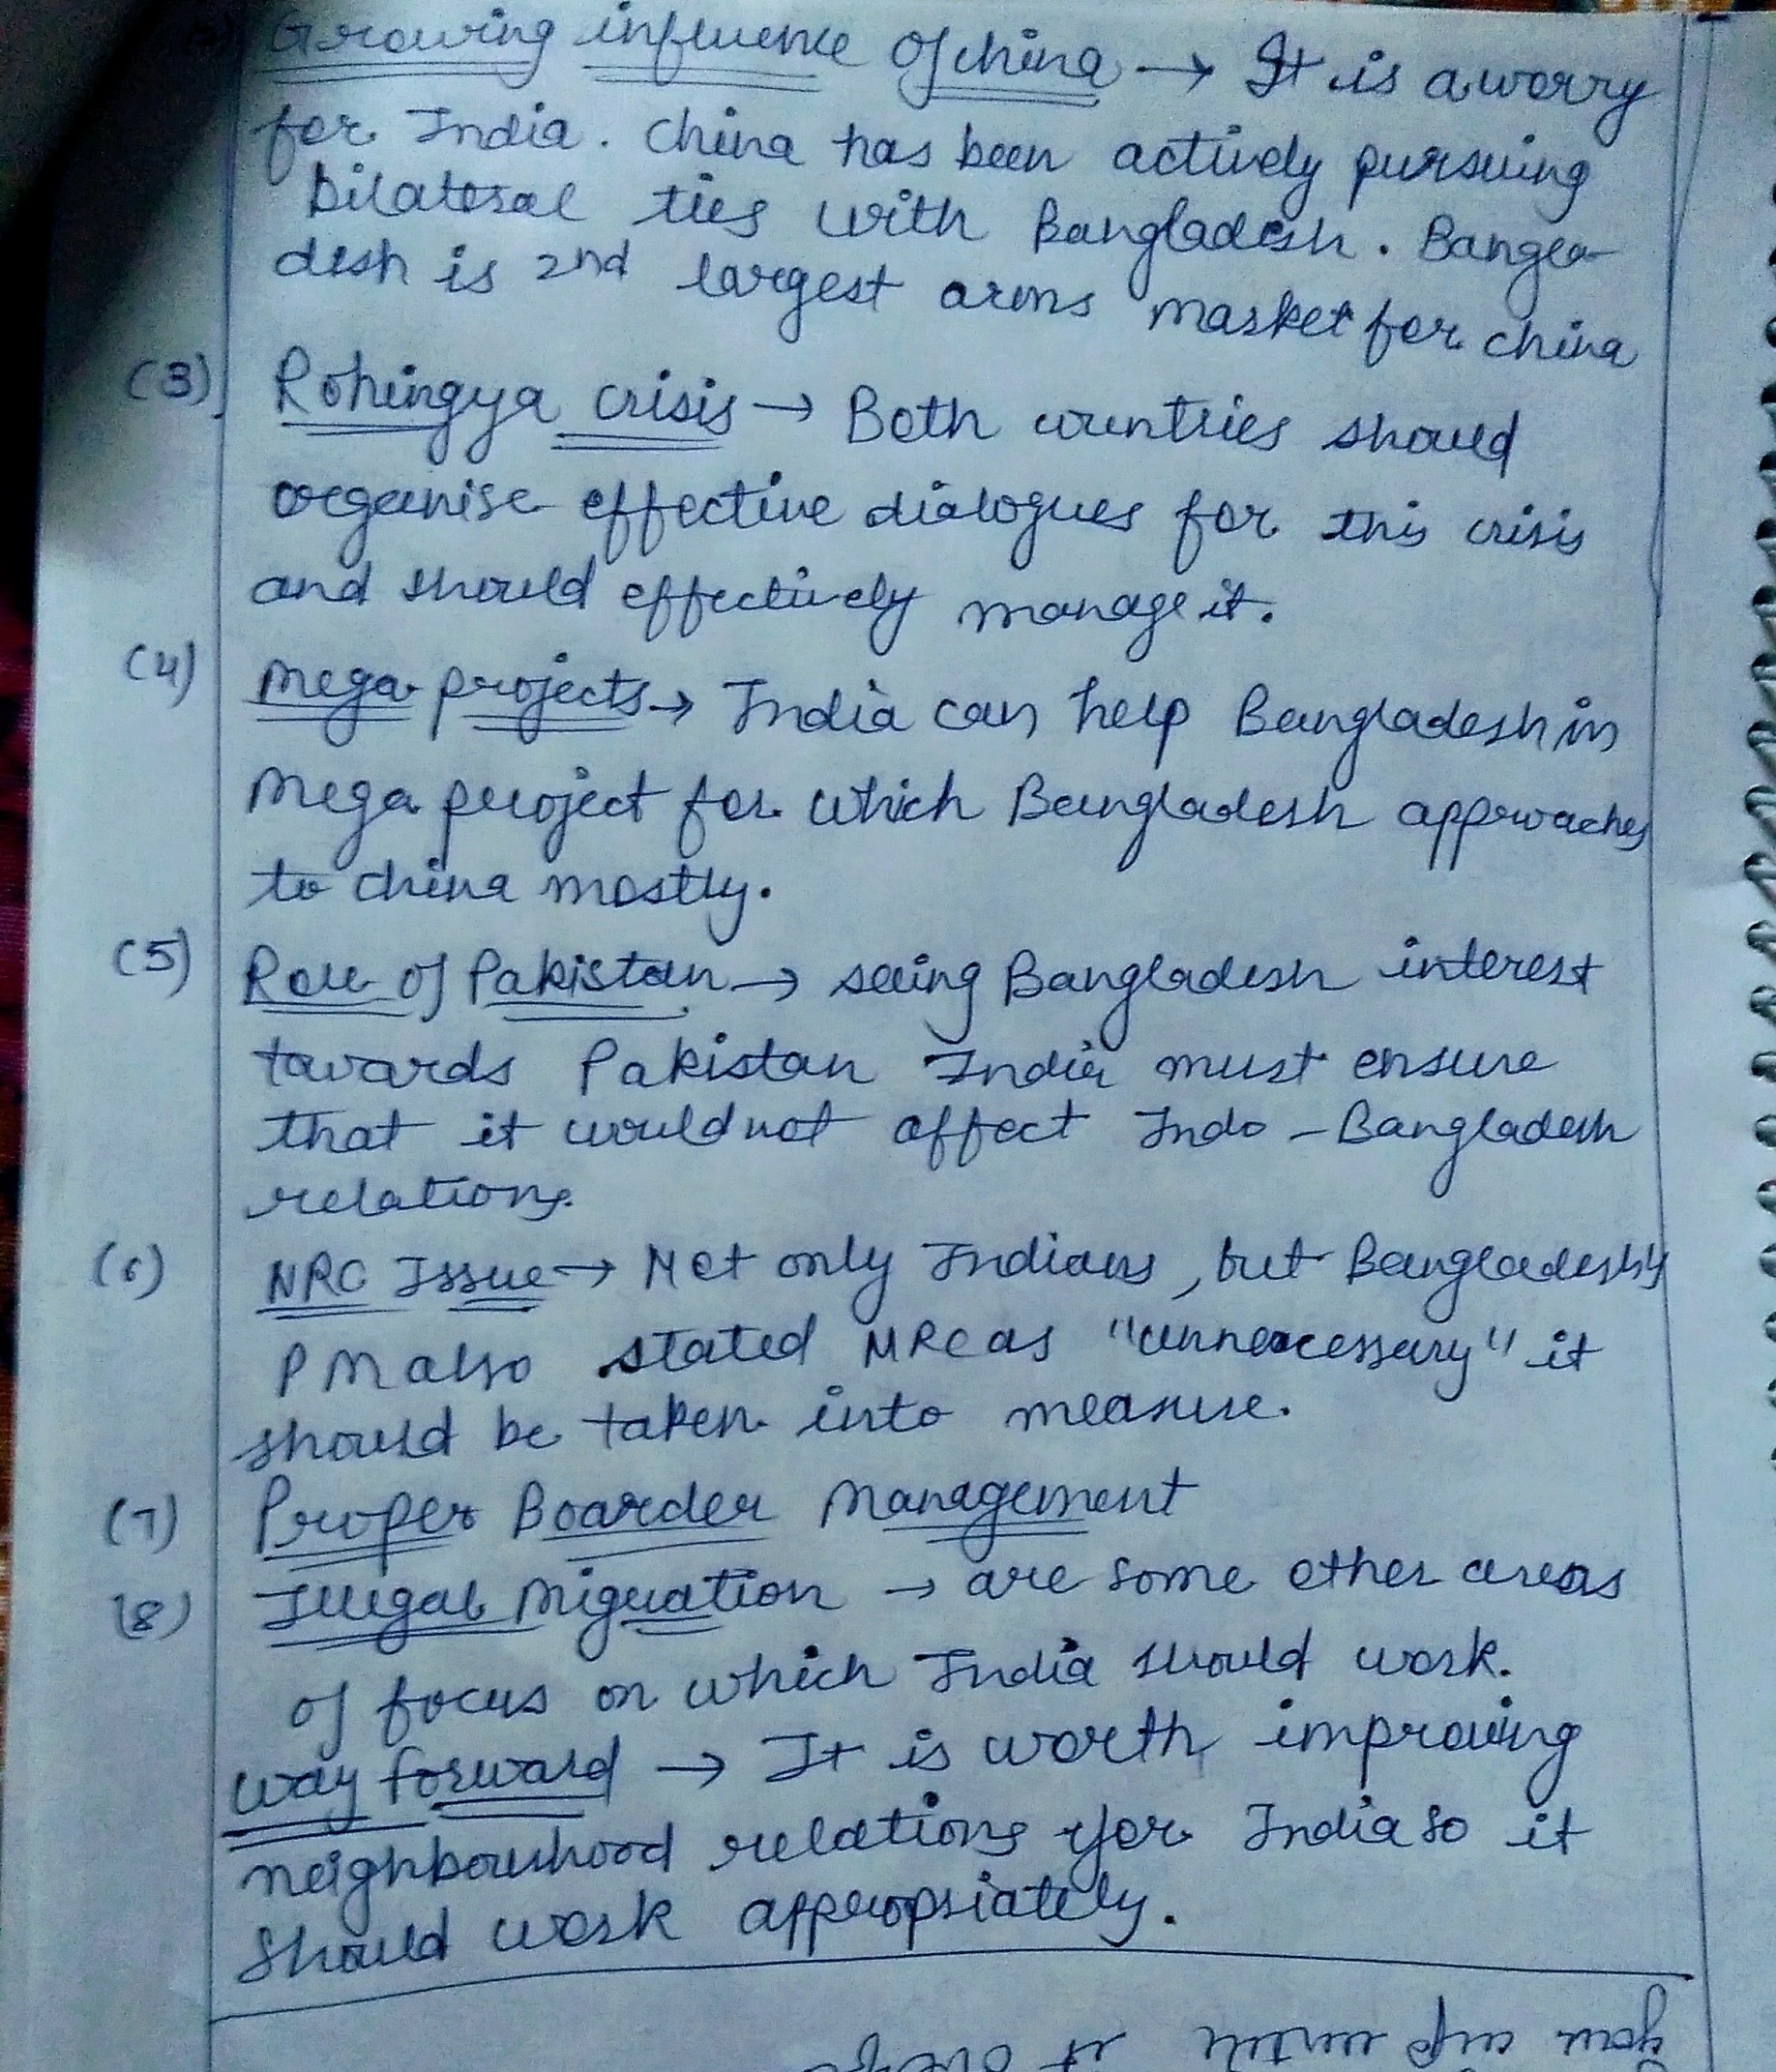 Growing influence of china → It is a worry
for India. China has been actively pursuing
bilateral ties with Bangladesh. Bangla-
desh is 2nd largest arms market for china
(3) Rohingya crisis → Both countries should
organise effective dialogues for this crisis
and should effectively manage it.
(4) Mega projects → India can help Bangladesh in
mega project for which Bangladesh approaches
to china mostly.
(5) Role of Pakistan → seeing Bangladesh interest
towards Pakistan India must ensure
that it would not affect Indo-Bangladesh
relations.
(6) NRC Issue → Not only Indians, but Bangladesh's
PM also stated NRC as "unneccessary" it
should be taken into measure.
(7) Proper Boarder Management
(8) Illegal Migration → are some other areas
of focus on which India should work.
way forward → It is worth improving
neighbourhood relations for India so it
should work appropriately.